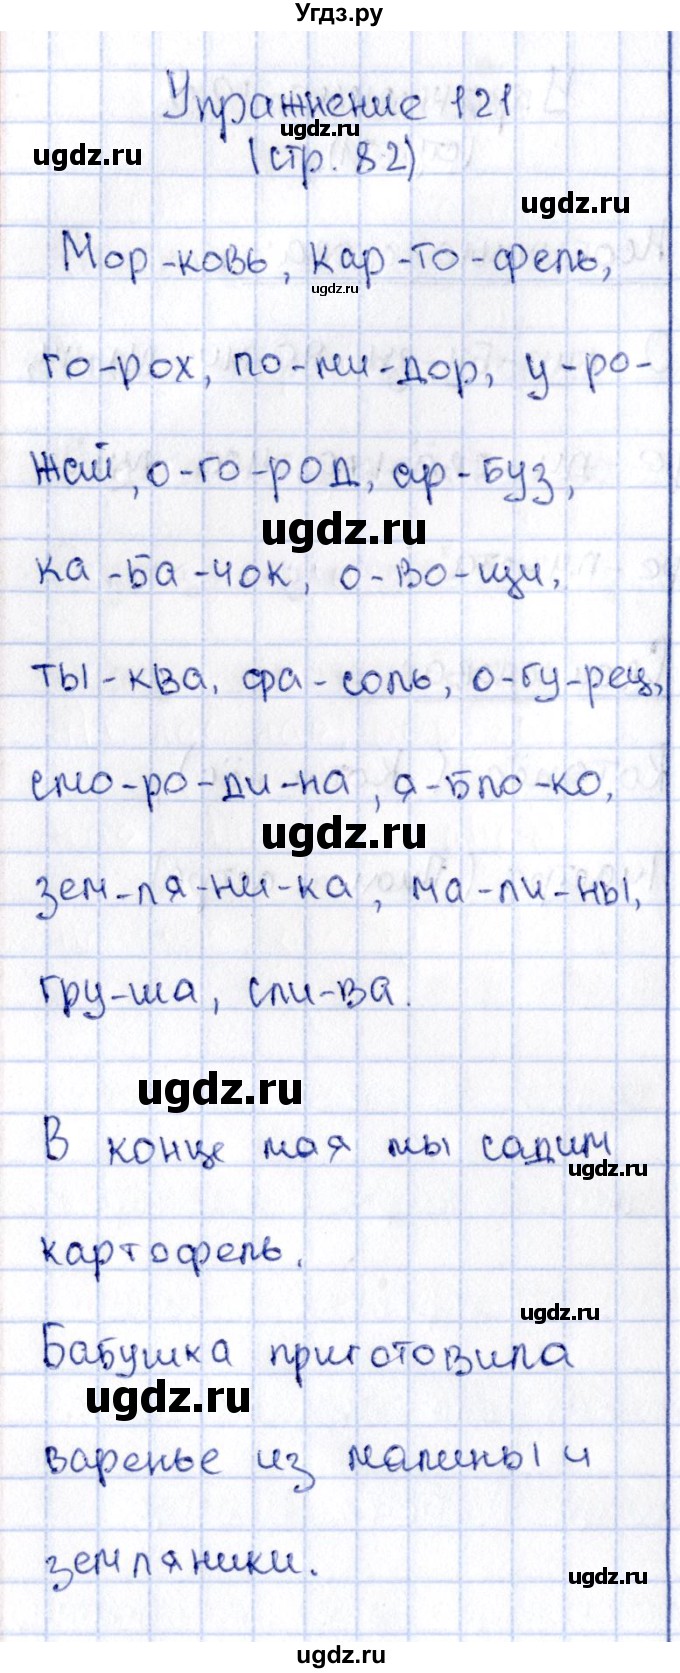 Угдз.ру
Упражнение 121
ugdz.ru
ugdz.ru
(стр. 82)
ugdz.ru
Мор-ковь, кар-то-фель,
ugdz.ru
го-рох, по-ми-дор, у-ро-
жай, о-го-род, ар-буз,
ugdz.ru
ка-ба-чок, о-во-щи,
ты-ква, фа-соль, о-гу-рец,
смо-ро-ди-на, я-бло-ко,
ugdz.ru
зем-ля-ни-ка, ма-ли-ны,
гру-ша, сли-ва.
ugdz.ru
В конце мая мы садим
ugdz.ru
картофель.
ugdz.ru
Бабушка приготовила
ugdz.ru
варенье из малины и
земляники.
ugdz.ru
ugdz.ru